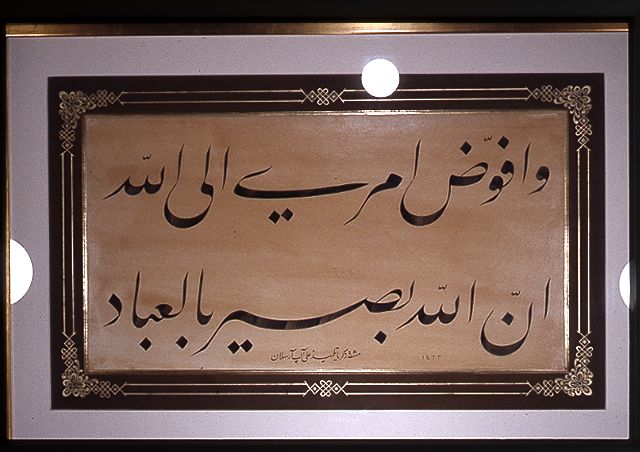 وافوّض امري الى الله
انّ الله بصير بالعباد
١٤٢٣